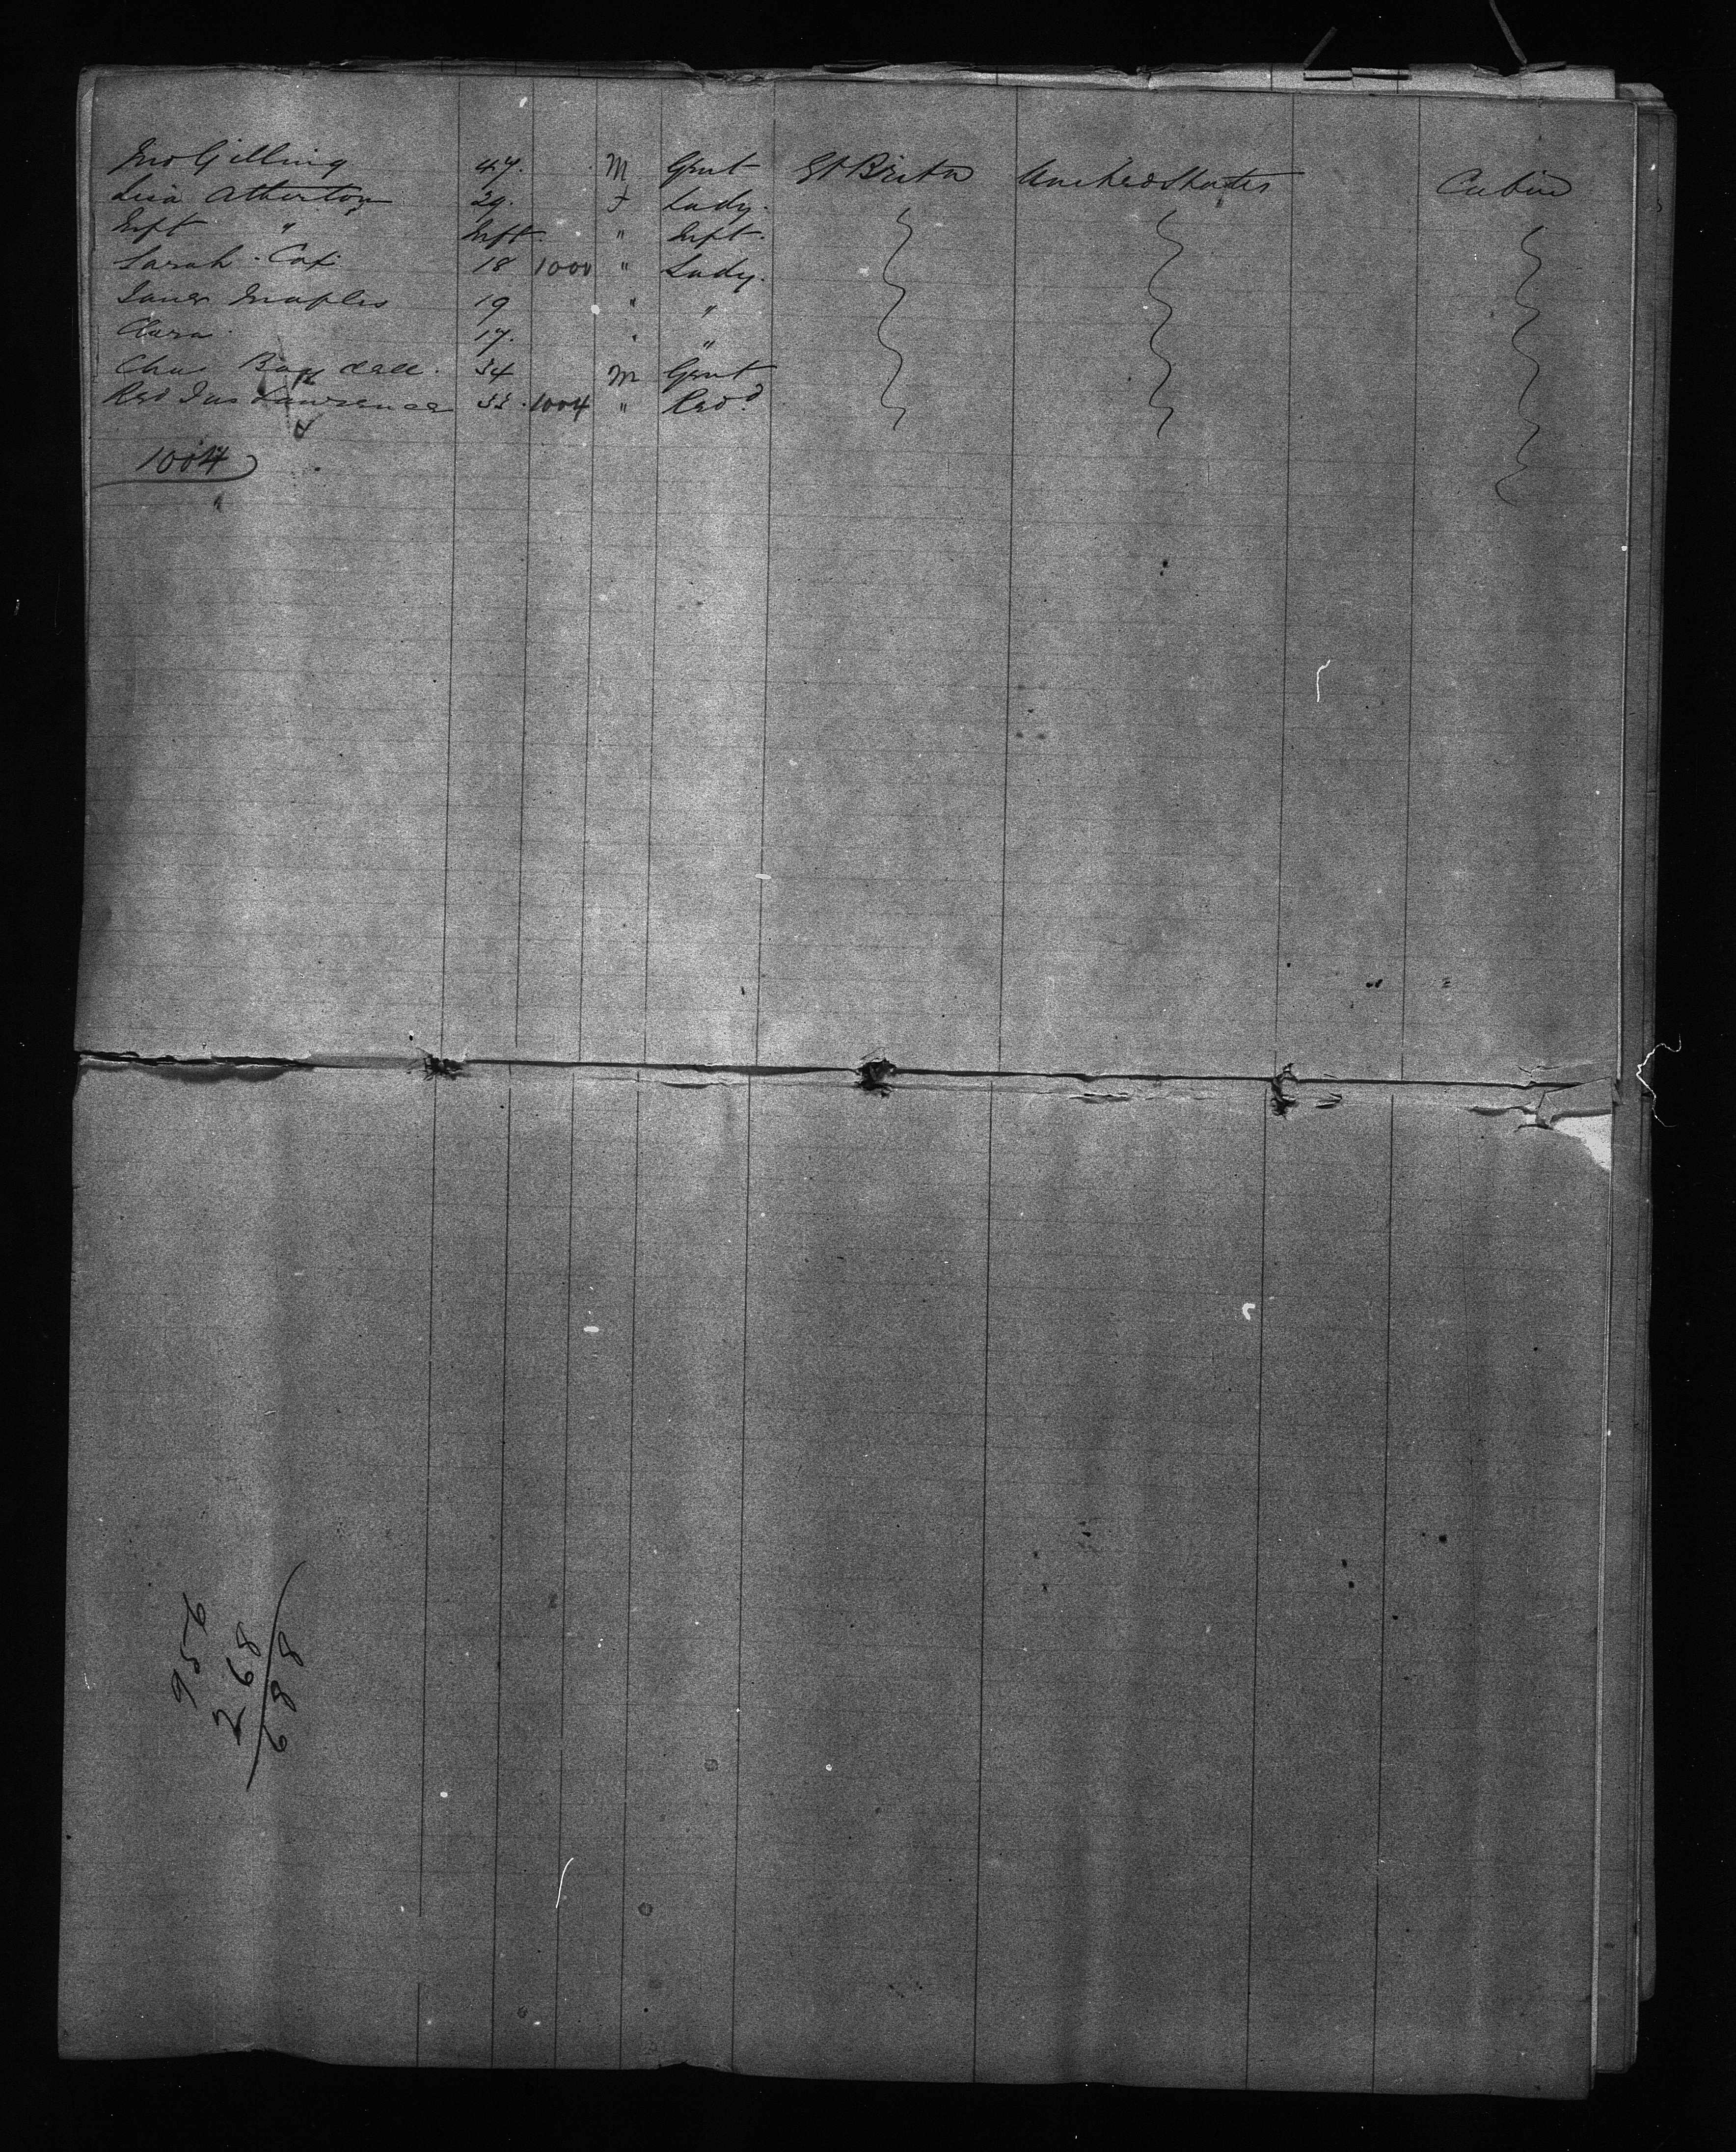 Jno Gilling 47. M Gent Gt Britn United States Cabin
Liza Atherton 29. F Lady.
Inft " Inft. " Inft.
Sarah Cox 18 1000 " Lady.
Jane Maples 19 " "
Clara 17. " "
Chas 34 M Gent
Revd Jas Lawrence 33. 1004 " Revd.
1004
956
268
688